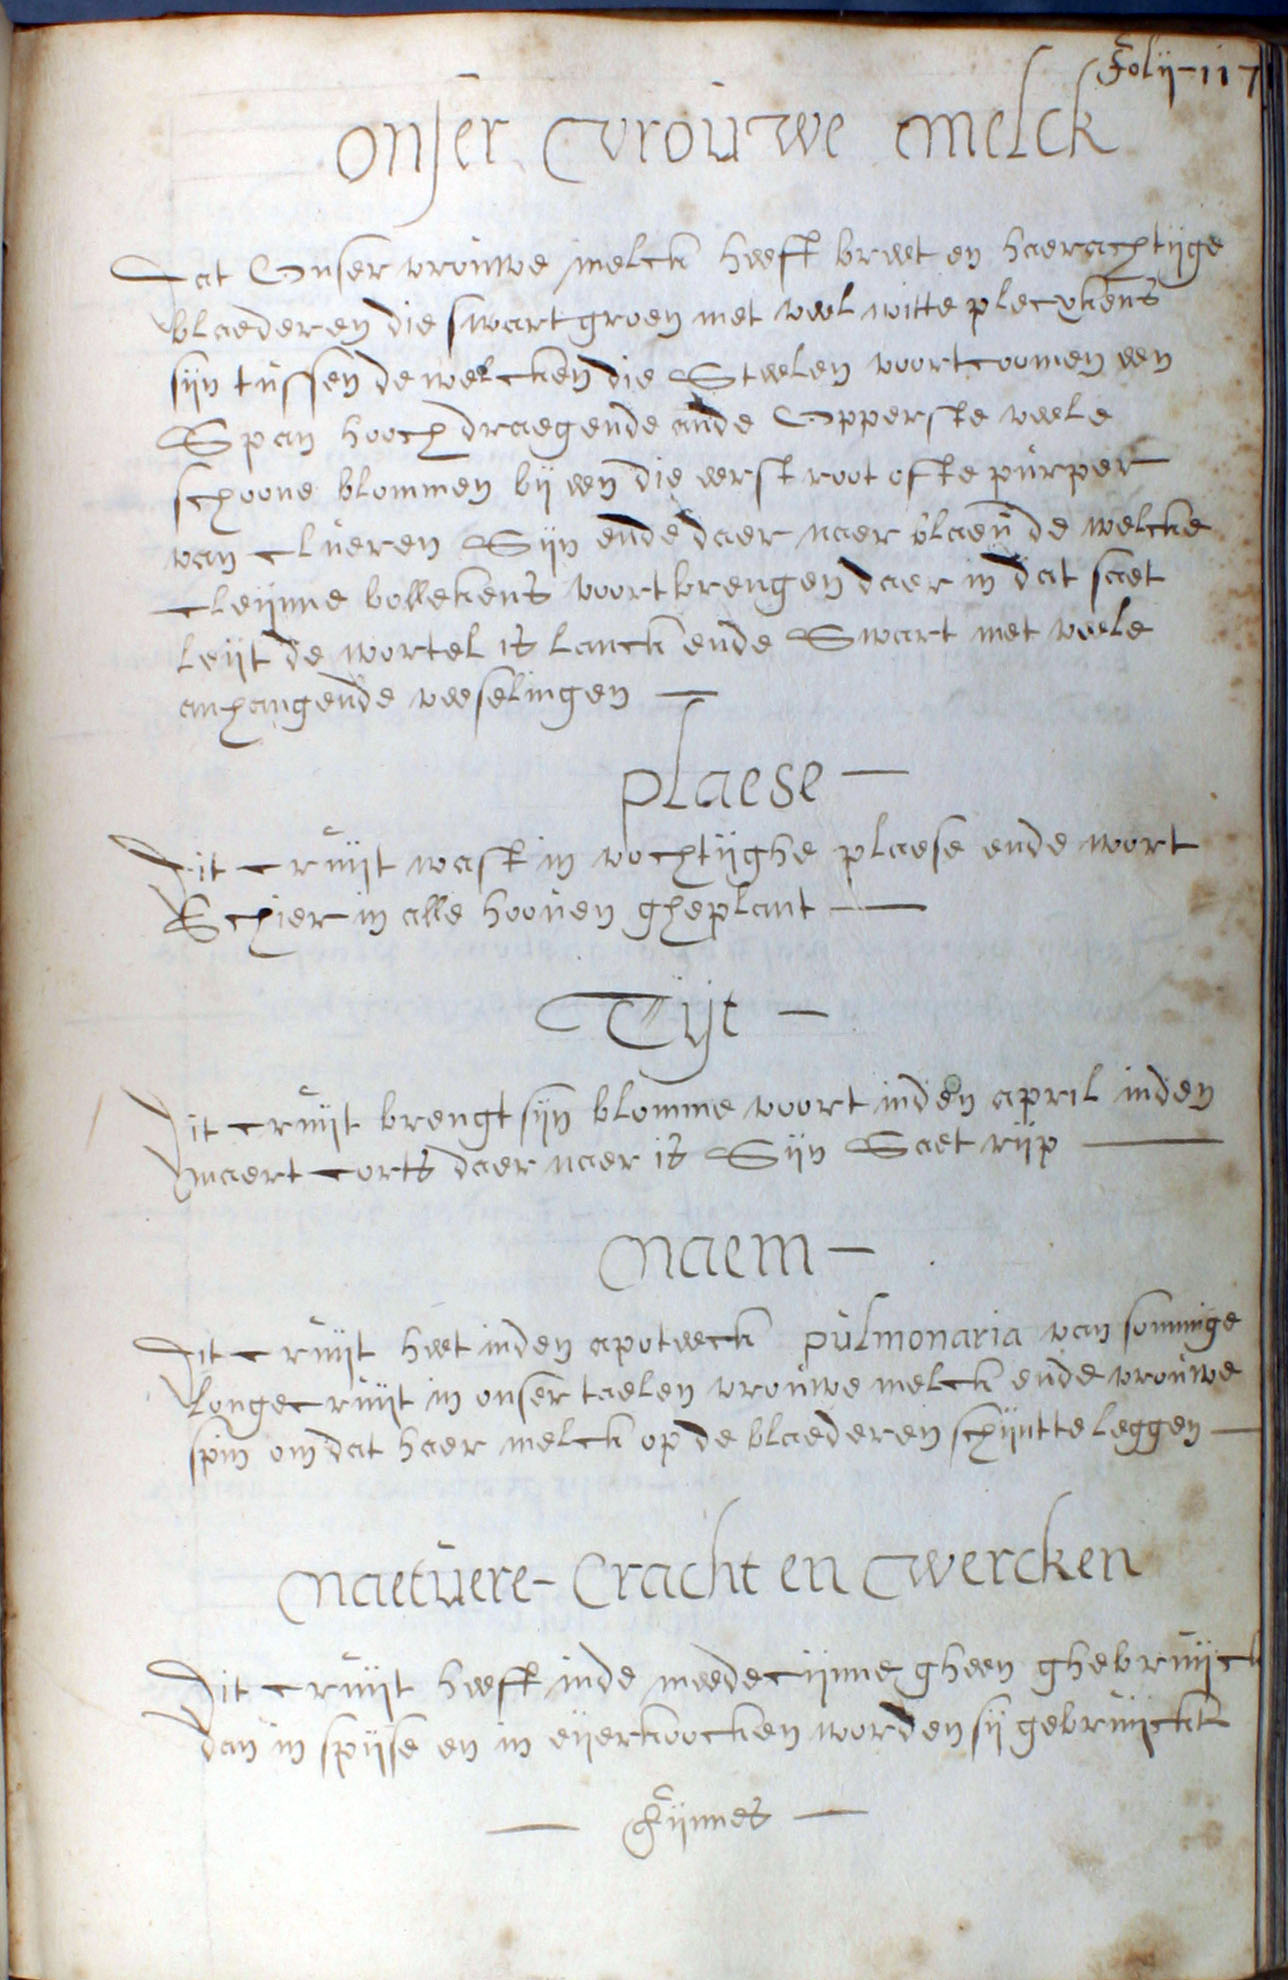 Folij-117
onser vrouwe melck
Dat Onser vrouwe melck heeft breet en haerachtijge
blaederen die swart groen met veel witte pleckens
sijn tussen de welcken die Steelen voortcoomen een
Span hooch draegende ande Opperste veele
schoone blommen bij een die eerst root ofte purper
van clueren Sijn ende daer naer blaeu de welcke
cleijnne bollekens voortbrengen daer in dat saet
leijt de wortel is lanck ende Swart met veele
anhangende veeselingen —
plaese —
Dit cruijt wast in vochtijghe plaese ende wort
Schier in alle hooven gheplant —
Tijt —
Dit cruijt brengt sijn blomme voort inden april inden
maert corts daer naer is Sijn Saet rijp —
Naem —
Dit cruijt heet inden apoteeck pulmonaria van sommige
longecruijt in onser taelen vrouwe melck ende vrouwe
spin om dat haer melck op de blaederen schijnt te leggen —
Naetuere - Cracht en wercken
Dit cruijt heeft inde meedecijnne gheen ghebruijck
dan in spijse en in eijerkoocken worden sij gebruijckt
— Fijnnes —